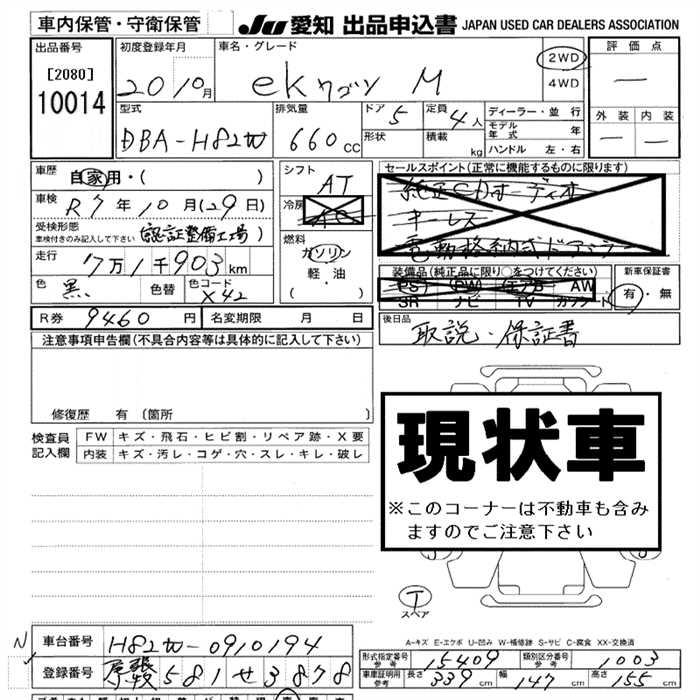 車内保管・守衛保管
JU 愛知 出品申込書 JAPAN USED CAR DEALERS ASSOCIATION
出品番号
[2080]
10014
初度登録年月
20年10月
車名・グレード
eKワゴン M
2WD
4WD
評価点
—
外装 内装
— —
型式
DBA-H82W
排気量
660cc
ドア 5
形状
定員 4人
積載 kg
ディーラー・並行
モデル年式 年
ハンドル 左・右
車歴 自家用・( )
車検 R7年10月(29日)
受検形態
車検付きのみ記入して下さい
(認証整備工場)
走行 7万1千903km
色 黒 色替 色コード X42
シフト AT
冷房 AC
燃料
ガソリン
軽・油
( ・ )
セールスポイント(正常に機能するものに限ります)
純正CDオーディオ
キーレス
電動格納式ドアミラー
装備品(純正品に限り○をつけてください)
PS PW エアB AW
SR ナビ TV カワシート
新車保証書
有・無
R券 9460円 名変期限 月 日
後日品
取説・保証書
注意事項申告欄(不具合内容等は具体的に記入して下さい)
修復歴 有 〔箇所 〕
検査員記入欄
FW キズ・飛石・ヒビ割・リペア跡・X要
内装 キズ・汚レ・コゲ・穴・スレ・キレ・破レ
現状車
※このコーナーは不動車も含み
ますのでご注意下さい
T
スペア
A-キズ E-エクボ U-凹み W-補修跡 S-サビ C-腐食 XX-交換済
車台番号 H82W-0910194
登録番号 尾張 581 せ 3878
型式指定番号 参考 15409 類別区分番号 参考 1003
車庫証明用 参考 長さ 339cm 幅 147cm 高さ 155cm